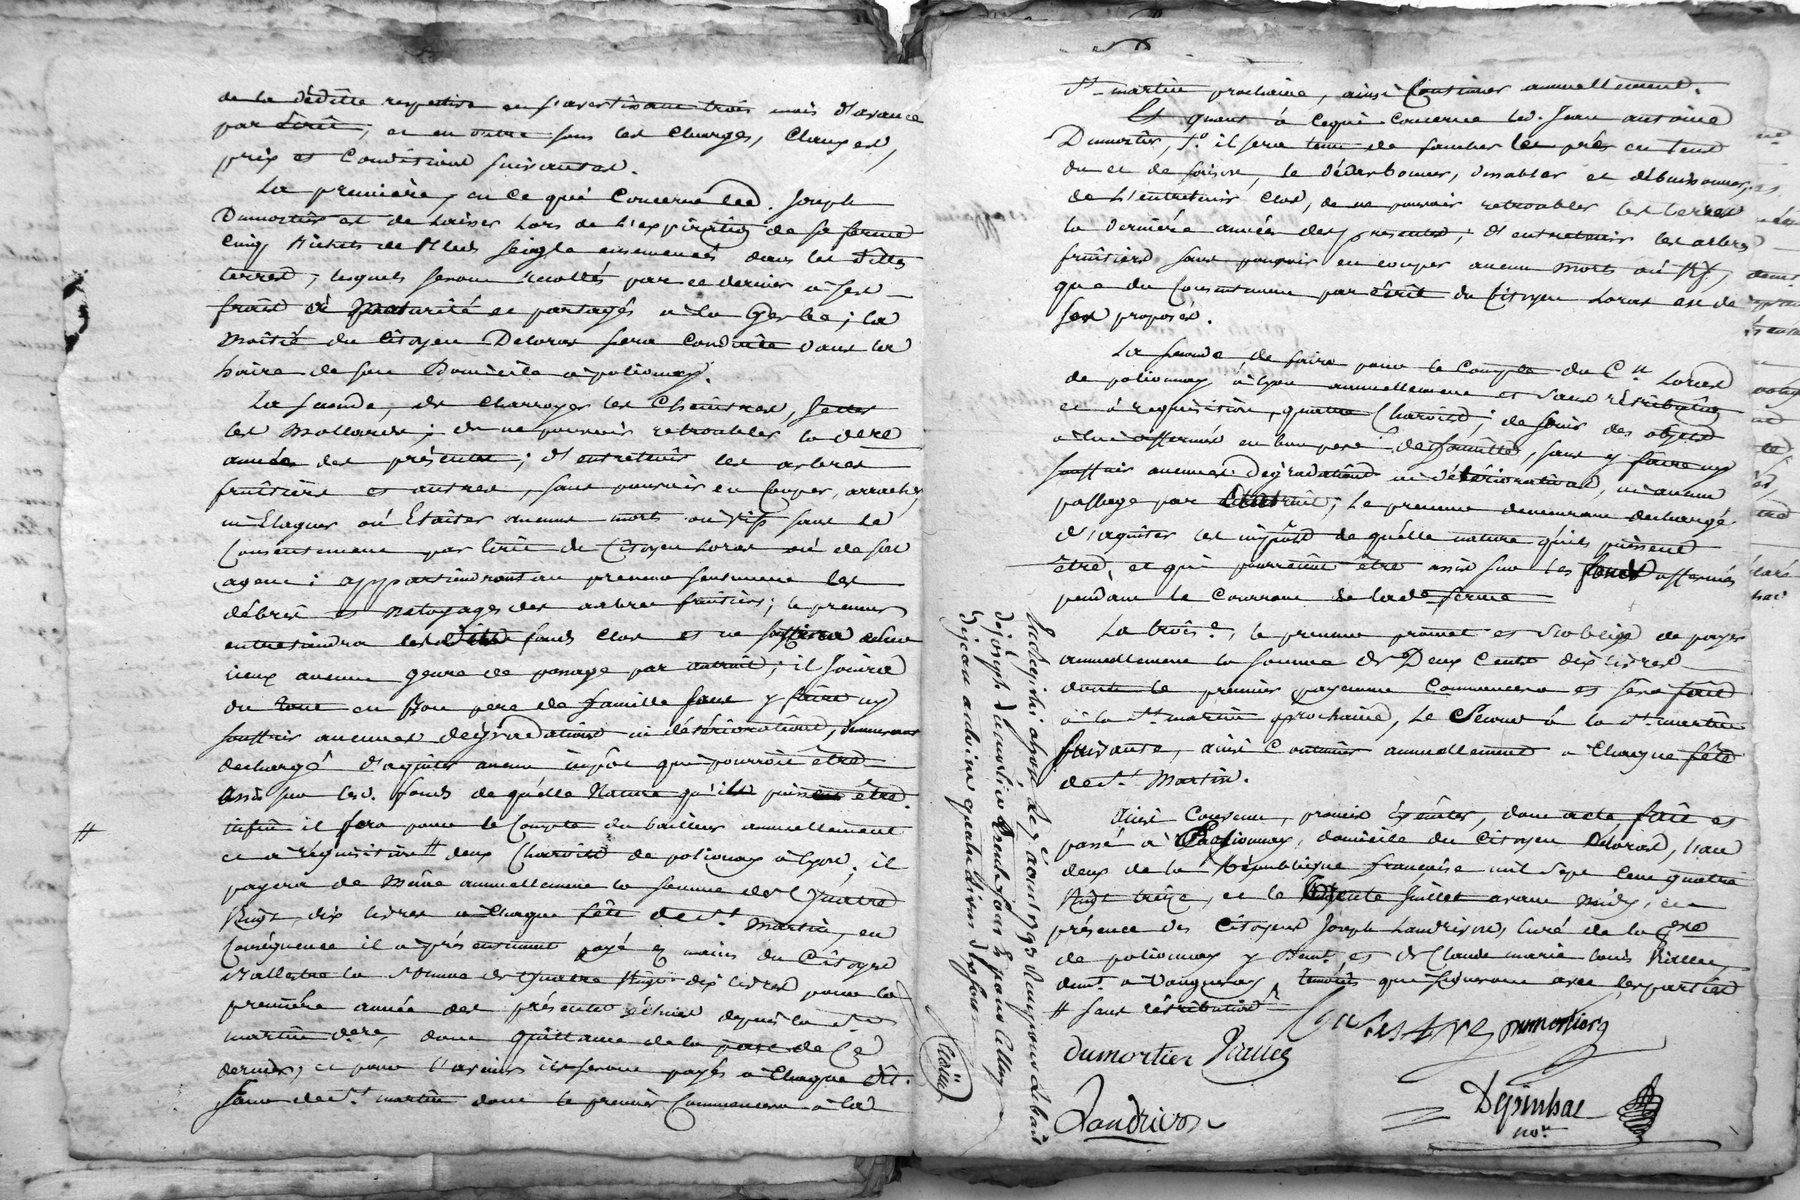 de la déditte respective en s'avertissant trois mois d'avance
par écrit, et en outre sous les charges, Clauses,
prix et Conditions suivantes.
La premiere, en ce qui Concerne led. Joseph
Dumortier est de laisser lors de l'expiration de sa ferme
Cinq Bichets de Bled seigle ensemencés dans les dittes
terres, lesquels seront récoltés par ce dernier à ses
frais à Maturité et partagés à la Gerbe; la
moitié du Citoyen Deloras sera conduitte dans la
de son Domicile à polionnay.
La seconde, de charroyer les Chaintres,
les Mollards; de ne pouvoir retroubler la dere
année des présentes; d'entretenir les arbres
fruitiers et autres, sans pouvoir en Couper, arracher,
ni Elaguer ou Etaiter aucuns morts ou vifs sans le
Consentement par écrit du Citoyen Loras ou de son
agent; appartiendront au preneur seulement les
débris et netoyages des arbres fruitiers; le preneur
entretiendra lesdits fonds clos et ne souffrira
aucun genre de passage par autrui; il jouira
du tout en Bon pere de famille sans y faire ny
souffrir aucunes dégradations ni détériorations, demeurant
déchargé d'aquiter aucun impôt qui pourroit être
assis sur lesd. fonds de quelle Nature qu'ils puissent être.
enfin il fera pour le Compte du bailleur annuellement
et à réquisition # deux Charois de polionay à Lyon; il
payera de Même annuellement la somme de Quatre
Vingt dix livres à Chaque fête de St Martin, en
Conséquence il a présentement payé ez mains du Citoyen
la somme de Quatre Vingt dix livres pour la
premiere année des présentes échue depuis la St
martin dere, dont quittance de la part de Ce
dernier, et pour l'avenir ils seront payés à Chaque dit.
jour de St martin dont le premier Commencera à la
#
St martin prochaine, ainsi Continuer annuellement.
Et quant à Cequi concerne led. Jean antoine
Dumortier, 1o il sera tenu de faucher les prés en tems
du et de saison, le dézerbonner, et débuissonner,
de l'entretenir Clos, de ne pouvoir retroubler les terres
la derniere année des présentes, d'entretenir les arbres
fruitiers sans pouvoir en couper aucun morts ou vifs,
que du Consentement par écrit du Citoyen Loras ou de
ses proposés.
La seconde, de faire pour le Compte du Cen Loras
de polionnay à Lyon annuellement et sans rétribution
et à requisition, quatre Charois; de jouir des objets
à lui affermés en bon pere de famille, sans y faire ny
souffrir aucunes dégradations ni détériorations, ni aucun
passage par autruit; le preneur demeurant dechargé
d'aquiter les impôts de quelle nature qu'ils puissent
être, et qui pourroient être assis sur les fonds affermés
pendant le Courrant de lade ferme
La troise, le preneur promet et s'oblige de payer
annuellement la somme de Deux Cents dix livres
dont le premier payement Commencera et sera fait
à la St martin prochaine, le Second à la St martin
suivante, ainsi Continuer annuellement à Chaque fête
de St Martin.
Ainsi Convenu, promis Exécuter, dont acte fait et
passé à Pollionnay, domicile du Citoyen Deloras, l'an
deux de la République francaise mil Sept Cent quatre
Vingt treize, et le trente Juillet avant midy, en
présence des Citoyens Joseph Landrivon, Curé de la pse
de polionnay y demt, et de Claude marie Louis Viallet
demt à Vaugneray temoins qui signeront avec les parties
# sans rétribution
Dumortier
dumortier Viallet
Landrivon
Despinhas
nore